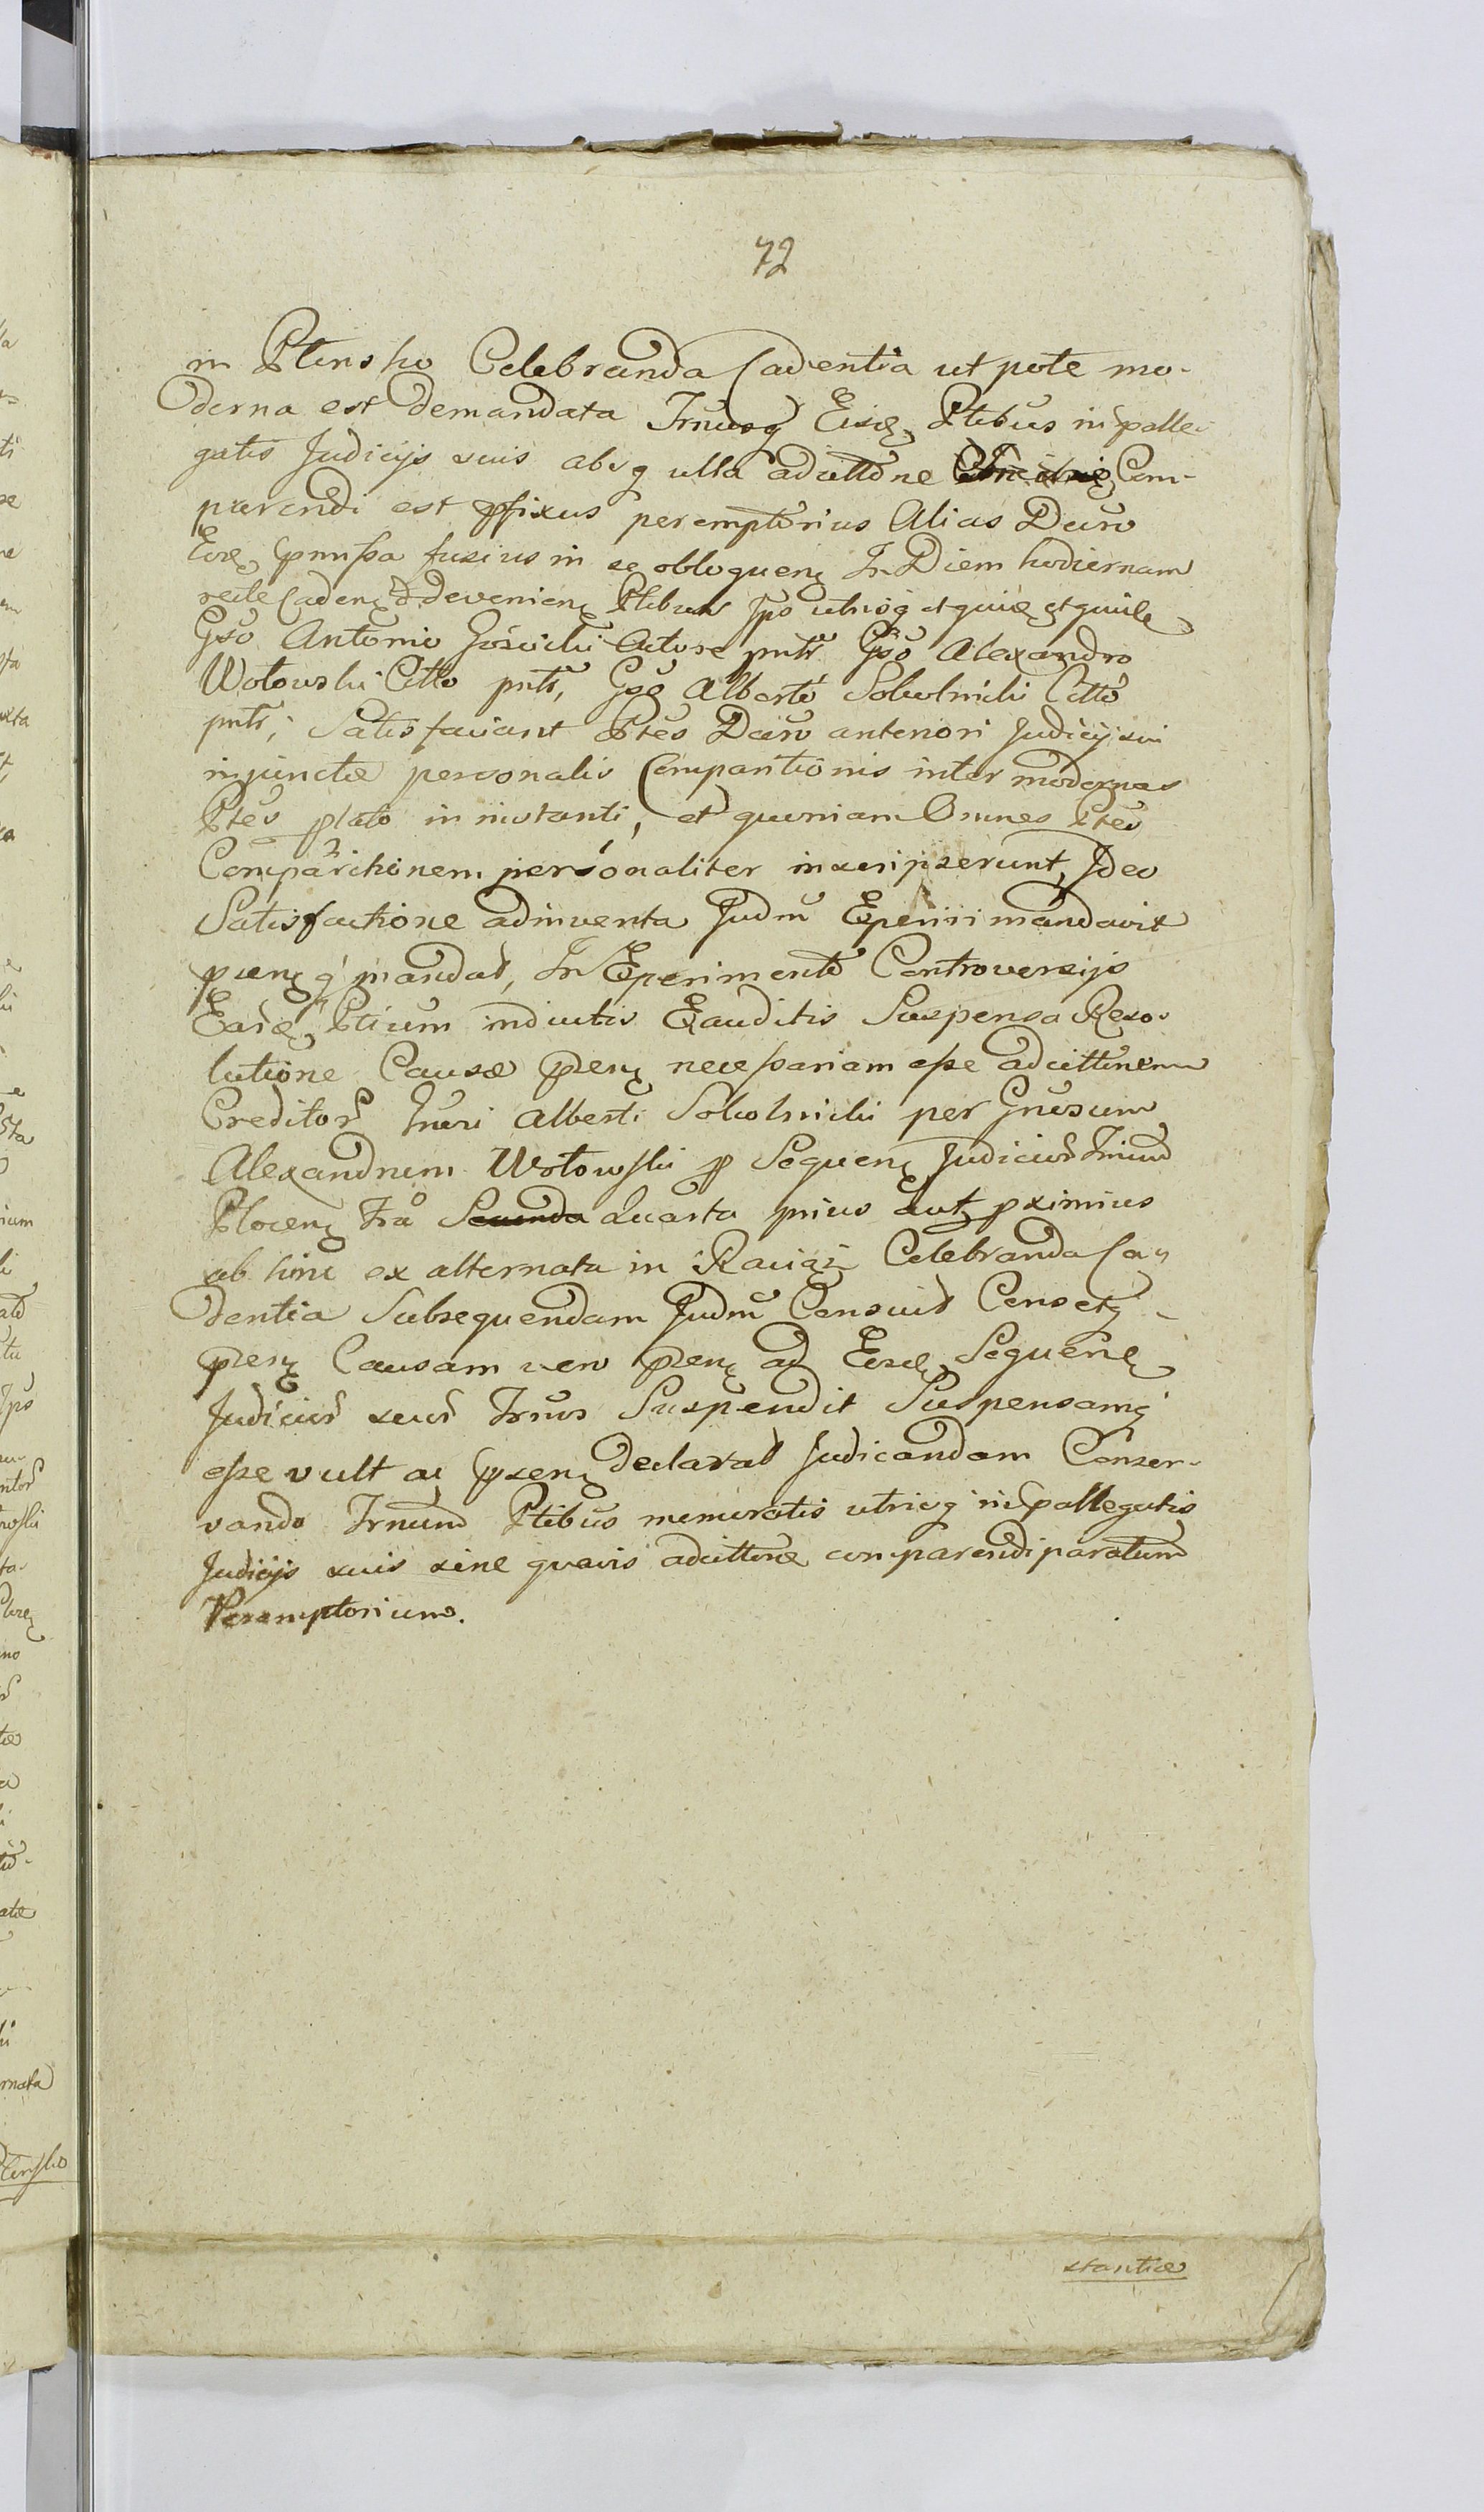 72
in Plinsko Celebranda Cadentia ut pote mo-
derna est demandata Trnusq Eisd Ptibus in palle-
gatis Judicijs suis absq ulla adcittone Com-
parendi est pfixus peremptorius Alias Decro
Eod pmissa fusius in se obloquen In Diem hodiernam
recte Caden & devenien Ptibus Ipo utrisq
Gso Antonio Gościcki Actore pntr Gso Alexandro
Wołowski Citto pntr, Gso Alberto Sokolnicki Citto
pntr; Satisfaciant Ptes Decro anteriori Judicij sui
injunctæ personalis Comparitionis inter modernas
Ptes plato in instanti, et quoniam Omnes Ptes
Comparitionem personaliter inscripserunt, Ideo
Satisfactione adinventa Judm Experiri mandavit
psenq mandat, In Experimento Controversijs
Eard Ptium inductis Exauditis Suspensa Reso-
lutione Causæ psen necessariam esse adcittonem
Creditor Gnrsi Alberti Sokolnicki per Gnrsum
Alexandrum Wołowski p Sequen Judicior Trnum
Plocen Fra Secunda Quarta prius aut pximius
ab hinc ex alternata in Raciąż Celebranda Ca-
dentia Subsequendam Judm Censuit Censetq
psen Causam vero psen ad Eosd Sequend
Judicior suor Trnos Suspendit Suspensamq
esse vult ac psen declarat Judicandam Conser-
vando Trnum Ptibus memoratis utrisq in pallegatis
Judicijs suis sine quavis adcittone comparendi paratum
Peremptorium.
stantiæ